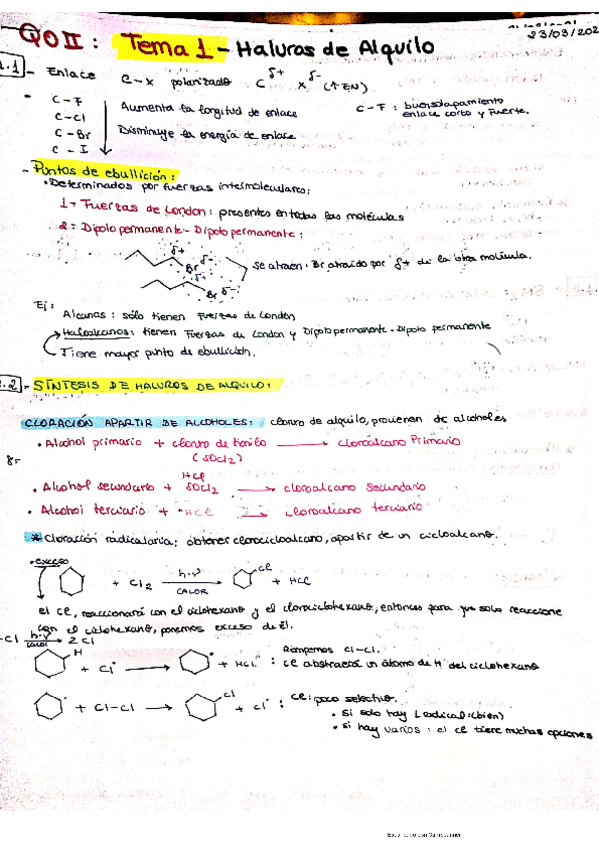 QO II : Tema 1 - Haluros de Alquilo
23/03/202
1.1 - Enlace C-X polarizado C δ+ X δ- (↑EN)
- C-F Aumenta la longitud de enlace C-F : buen solapamiento
C-Cl enlace corto y fuerte.
C-Br Disminuye la energía de enlace
C-I
- Puntos de ebullición :
• Determinados por fuerzas intermoleculares:
1- Fuerzas de London: presentes en todas las moléculas
2 = Dipolo permanente - Dipolo permanente :
δ+
Br δ- se atraen. Br atraido por δ+ de la otra molécula.
δ+
Br δ-
Ej :
Alcanos : sólo tienen Fuerzas de London
Haloalcanos: tienen Fuerzas de London y Dipolo permanente - Dipolo permanente
Tiene mayor punto de ebullición.
1.2 - SÍNTESIS DE HALUROS DE ALQUILO:
CLORACIÓN APARTIR DE ALCOHOLES: cloruro de alquilo, provienen de alcoholes
• Alcohol primario + cloruro de tionilo → cloroalcano Primario
(SOCl2)
HCl
• Alcohol secundario + SOCl2 → cloroalcano Secundario
• Alcohol terciario + HCl → cloroalcano terciario
* Cloración radicalaria: obtener clorocicloalcano, apartir de un cicloalcano.
• exceso
+ Cl2 h·ν CALOR → Cl + HCl
el Cl, reaccionará con el ciclohexano y el clorociclohexano, entonces para que solo reaccione
con el ciclohexano, ponemos exceso de él.
-Cl h·ν CALOR → 2 Cl
Rompemos Cl-Cl.
H + Cl· → · + HCl : Cl abstraerá un átomo de H del ciclohexano
· + Cl-Cl → Cl + Cl· : Cl: poco selectivo.
• Si solo hay 1 radical (bien)
• si hay varios : el Cl tiene muchas opciones